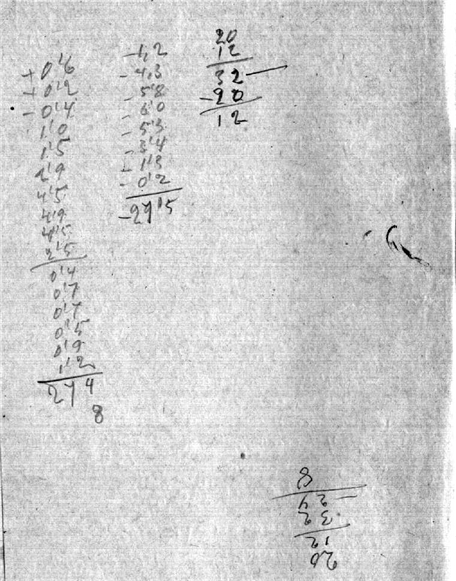 + 0'6
+ 0'2
- 0'4
1'0
1'5
2'9
4'5
4'9
4'5
2'5
0'4
0'7
0'7
0'5
0'9
1'2
27 4
8
-1,2
-4,3
-5'8
-6'0
-5'3
-3'4
-1'3
-0'2
-27'5
20
12
32
-20
12
20
12
32
8